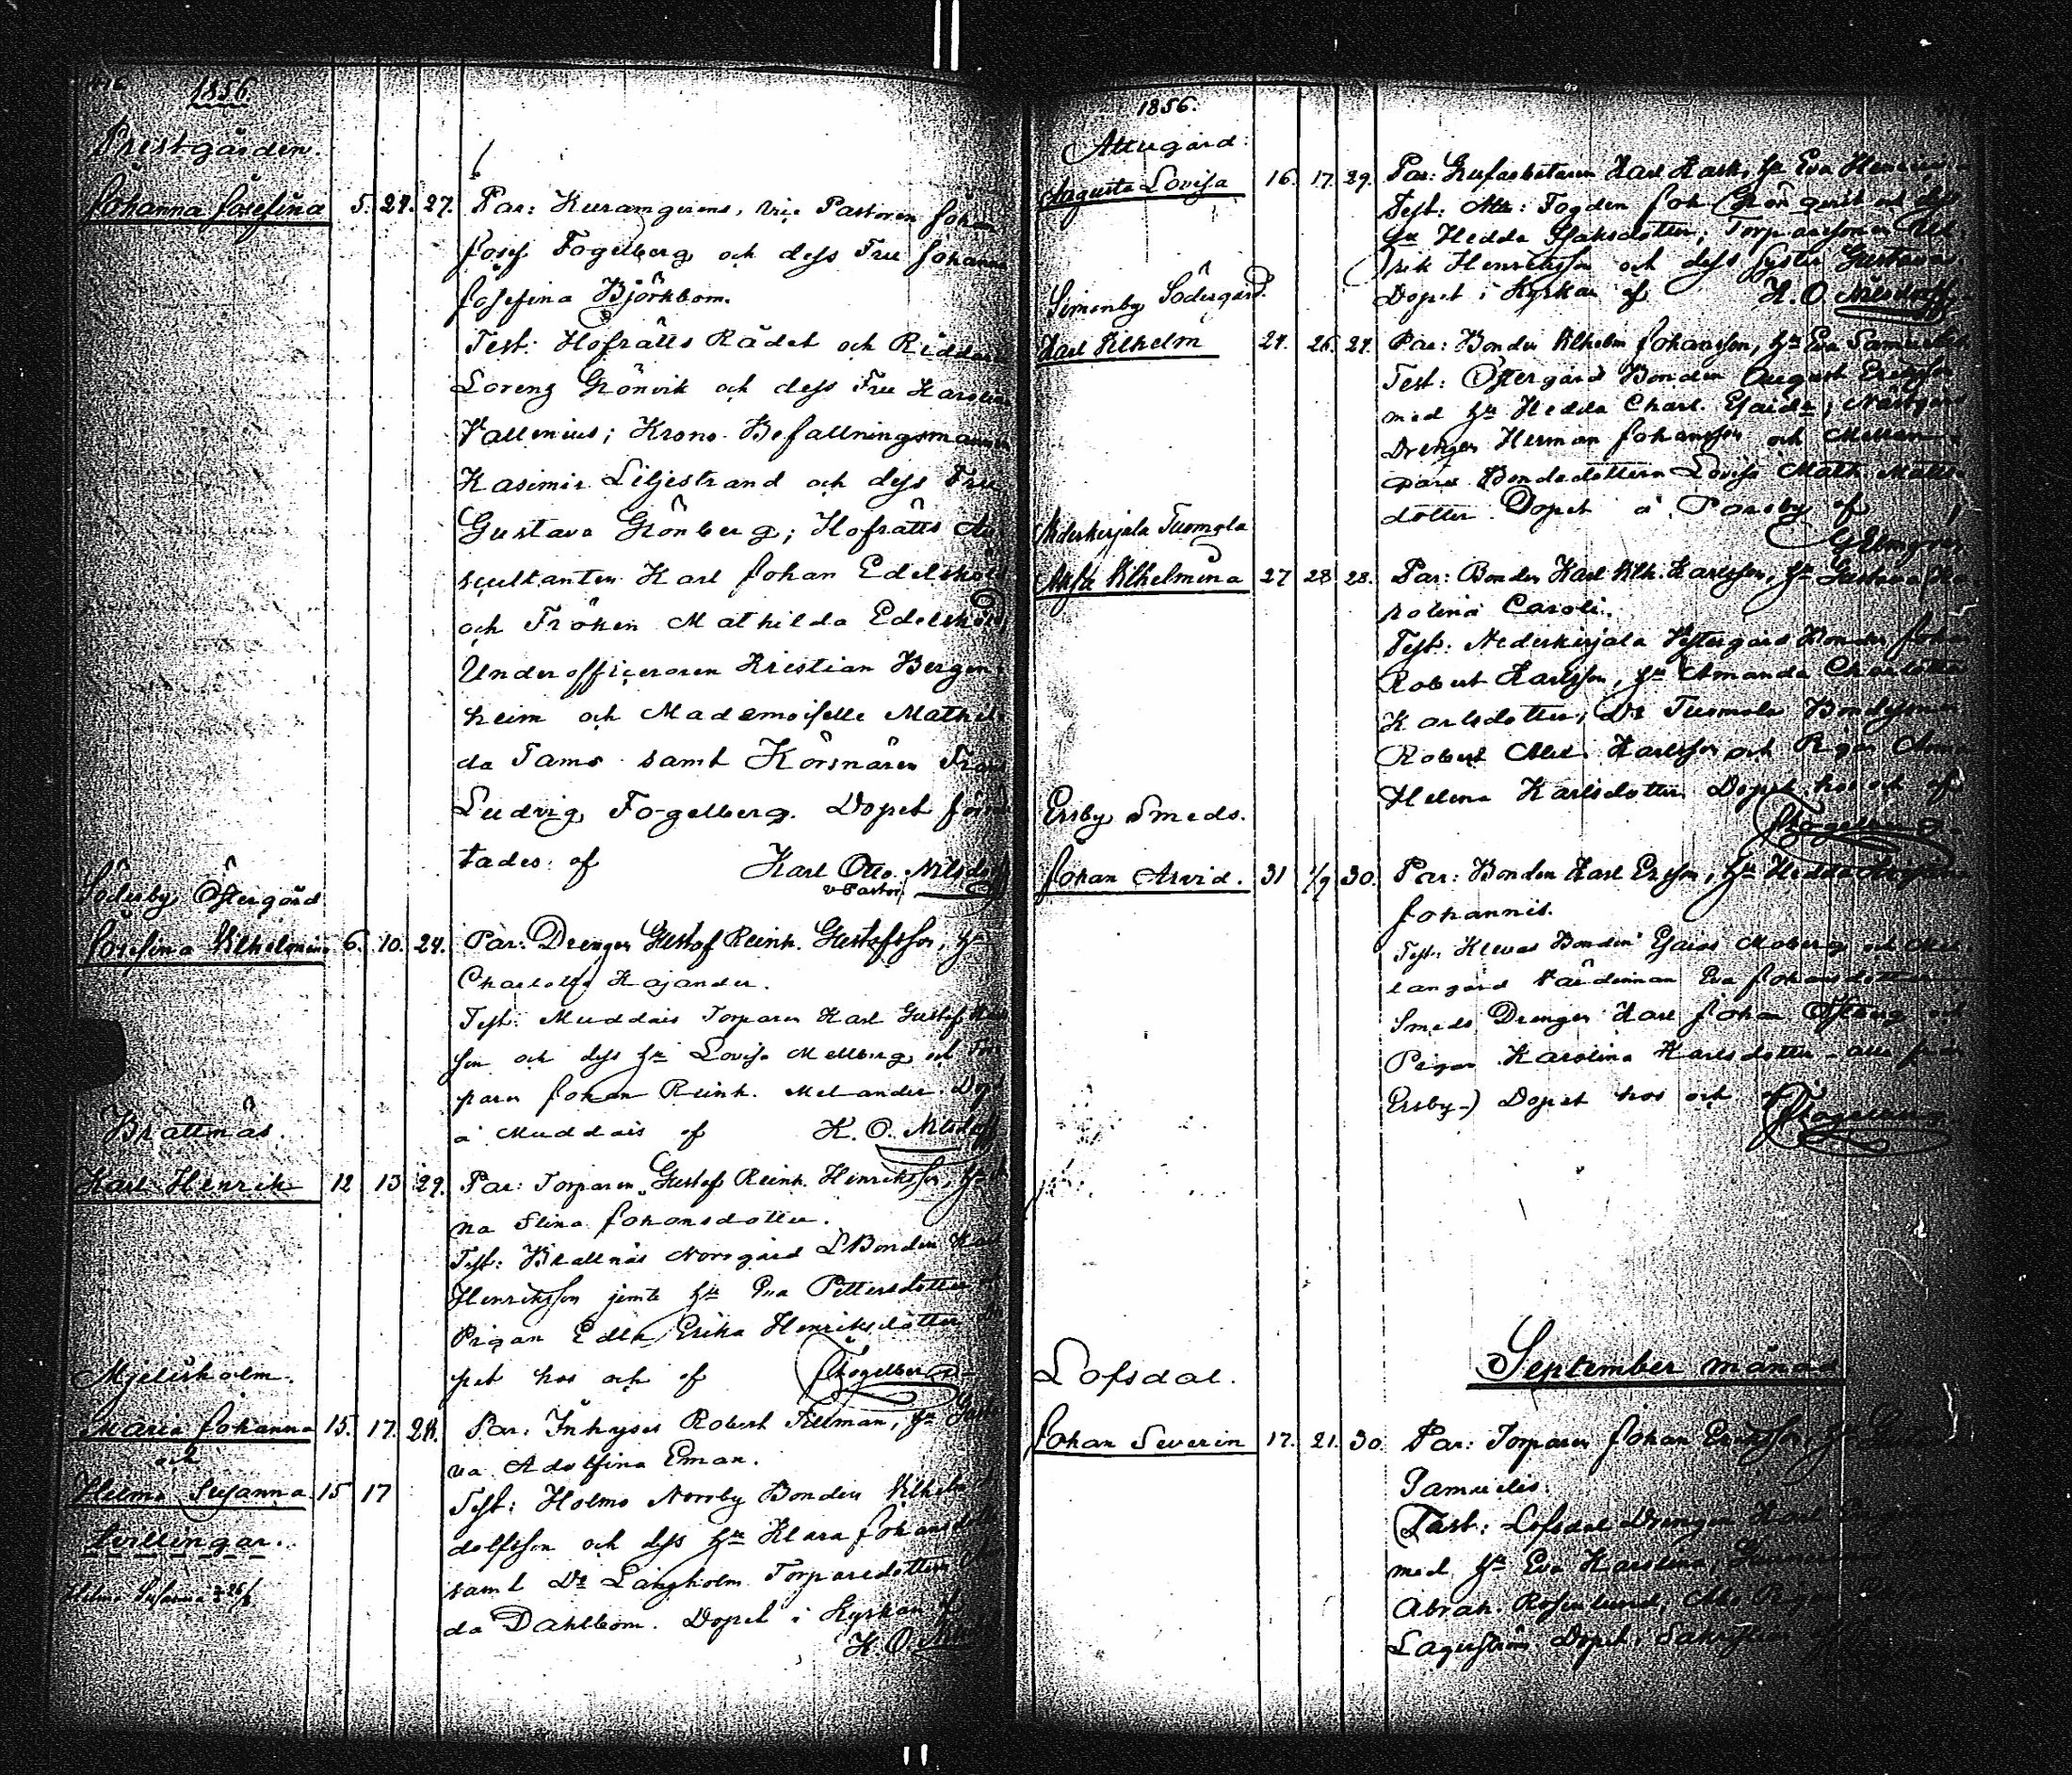 1856
Prestgården.
Johanna Josefina 5. 24. 27. Par: Kuramgerens, vice Pastoren Johan
Josef Fogelberg och dess Fru Johanna
Josefina Björkbom.
Test: Hofrätts Rådet och Riddaren
Lorenz Grönvik och dess Fru Karolina
Vallenius; Krono Befallningsmannen
Kasimir Liljestrand och dess Fru
Gustava Grönberg; Hofrätts Au
scultanten Karl Johan Edelsköld
och Fröken Mathilda Edelsköld
Underofficeraren Kristian Bergen
heim och Mademoiselle Mathil
da Tamo samt Körsnären Frans
Ludvig Fogelberg. Dopet förrät
tades of Karl Otto Nilsdorff
v Pastor
Söderby Östergård
Josefina Vilhelmina 6. 10. 24. Par: Drengen Gustaf Reinh. Gustafsson, hu
Charlotta Kajander.
Test: Muddais Torparen Karl Gustaf
son och dess hu Lovisa Mellberg och Tor
paren Johan Reinh. Melander. Dopt
å Muddais of K. O. Nilsdorff
Krattnäs.
Karl Henrik 12 13 29. Par: Torparen Gustaf Reinh. Henriksson, hu
na Stina Johansdotter.
Test: Krattnäs Norrgård L Bonden Karl
Henriksson jemte hu Eva Pettersdotter
Pigan Edla Erika Henriksdotter Do
pet hos och of JJFogelberg
Mjelisholm.
Maria Johanna 15. 17. 28. Par: Inhyses Robert Tillman, hu Gusta
och
va Adolfina Eman.
Helma Susanna 15 17
Test: Holmo Norrby Bonden Vilhelm
Tvillingar.
dolfsson och dess hu Klara Johansdotter
samt Do Långholm Torparedottern
Helma Susanna
da Dahlbom. Dopet i Kyrkan of
K. O. Nilsdorff
1856.
Attugård:
Augusta Lovisa 16. 17. 29. Par: Karl Kask, hu Eva Henriks
Test: Attu: Fogden Joh Grönqvist och dess
hu Hedda Isaksdotter; Torparesonen Ul
rik Henriksson och dess syster Gustava.
Dopet i Kyrkan of K. O. Nilsdorff
Simonby Södergård.
Karl Vilhelm 24. 26. 27. Par: Bonden Vilhelm Johansson, hu Eva Samuelsd
Test: Östergård Bonden August Ericsson
med hu Hedda Charl. Esaidr;
Drengen Herman Johansson och Mellan
gård Bondedottern Lovisa Math. Matts
dotter. Dopet å Parsby of
Nederkirjala Tuomola
Vilhelmina 27 28 28. Par: Bonden Karl Vilh. Karlsson, hu Gustava Ka
rolina Caroli.
Test: Nederkirjala Vestergård Bonden Johan
Robert Karlsson, hu Amanda Charlotta
Karlsdotter; Do Tuomola Bondesonen
Robert Alex. Karlsson och Pigan Anna
Helena Karlsdotter Dopet hos och of
JJFogelberg
Ersby Smeds.
Johan Arvid. 31 1/9 30. Par: Bonden Karl Ersson, hu Hedda
Johannis.
Test: Klevas Bonden Esaias Moberg och Mel
langård Värdinnan Eva Johansdotter
Smeds Drengen Karl Johan Öfberg och
Pigan Karolina Karlsdotter - alla från
Ersby -) Dopet hos och of
JJFogelberg
September månad.
Lofsdal.
Johan Severin 17. 21. 30 Par: Torparen Johan Ericsson, hu
Samuelis.
Test: Lofsdal Drengen Karl
med hu Eva Karolina,
Abrah. Rosenlund,
Lagerström Dopet i Sakristian of